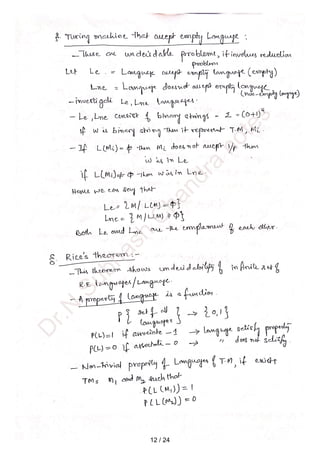 2. Turing machine that accept empty Language :
- There are undecidable problems, if involves reduction
problem
Let Le = Language accept empty language (empty)
Lne = Language does not accept empty language
(non-empty language)
- investigate Le, Lne languages.
- Le, Lne consist of binary strings - Σ = (0+1)*
If w is binary string then it represent T.M, Mi
- If L(Mi) = φ then Mi does not accept i/p then
w is in Le
if L(Mi) ≠ φ then w is in Lne.
Hence we can say that
Le = {M / L(M) = φ}
Lne = {M / L(M) ≠ φ}
Both Le and Lne are the complement of each other.
Rice's theorem :-
- This theorem shows undecidability of infinite set of
R.E languages/Language.
- A property of Language is a function.
P { set of all languages } → {0,1}
P(L)=1 if associate - 1 → language satisfy property
P(L)=0 if associate - 0 → " does not satisfy.
- Non-trivial property of Languages of T.M, if exist
TMs M1 and M2 such that
P(L(M1)) = 1
P(L(M2)) = 0
12 / 24